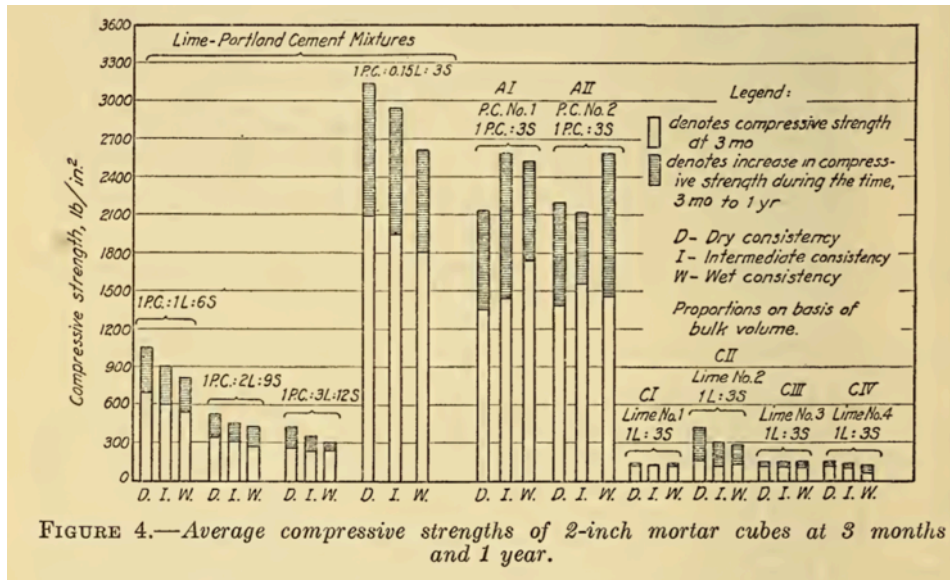 3600
3300
3000
2700
2400
2100
1800
1500
1200
900
600
300
0
Compressive strength, lb/in.²
Lime-Portland Cement Mixtures
1P.C.:1L:6S
1P.C.:2L:9S
1P.C.:3L:12S
1P.C.:0.15L:3S
AI
P.C. No.1
1P.C.:3S
AII
P.C. No.2
1P.C.:3S
Legend:
denotes compressive strength
at 3 mo
denotes increase in compress-
ive strength during the time,
3 mo to 1 yr
D- Dry consistency
I- Intermediate consistency
W- Wet consistency
Proportions on basis of
bulk volume.
CI
Lime No.1
1L:3S
CII
Lime No.2
1L:3S
CIII
Lime No.3
1L:3S
CIV
Lime No.4
1L:3S
D. I. W. D. I. W. D. I. W. D. I. W. D. I. W. D. I. W. D. I. W. D. I. W. D. I. W. D. I. W.
FIGURE 4.—Average compressive strengths of 2-inch mortar cubes at 3 months
and 1 year.